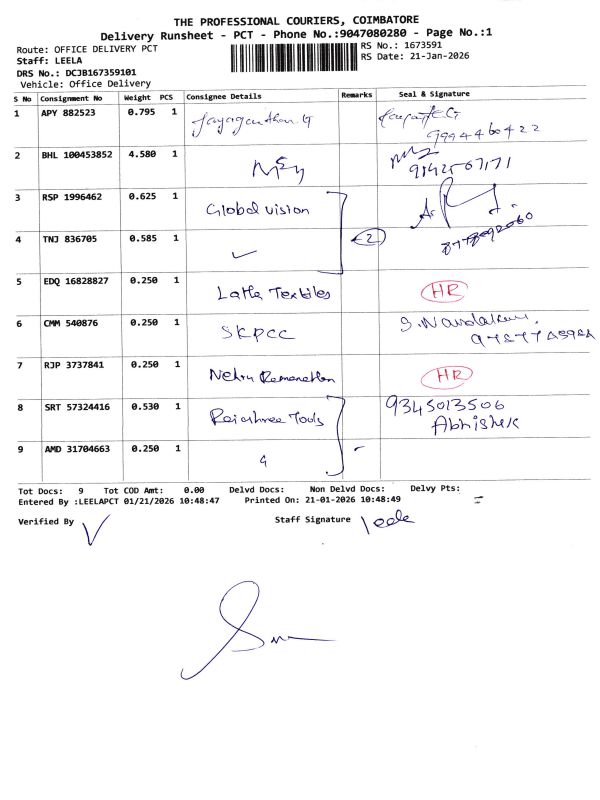 THE PROFESSIONAL COURIERS, COIMBATORE
Delivery Runsheet - PCT - Phone No.:9047080280 - Page No.:1
Route: OFFICE DELIVERY PCT
RS No.: 1673591
Staff: LEELA
RS Date: 21-Jan-2026
DRS No.: DCJB167359101
Vehicle: Office Delivery
S No Consignment No Weight PCS Consignee Details Remarks Seal & Signature
1 APY 882523 0.795 1 9994460422
2 BHL 100453852 4.580 1
3 RSP 1996462 0.625 1 Global vision
4 TNJ 836705 0.585 1 2
5 EDQ 16828827 0.250 1 Latha Textiles HR
6 CMM 540876 0.250 1 SKPCC
7 RJP 3737841 0.250 1 Nehru HR
8 SRT 57324416 0.530 1 Rajshree Tools 9345013506
Abhishek
9 AMD 31704663 0.250 1
Tot Docs: 9 Tot COD Amt: 0.00 Delvd Docs: Non Delvd Docs: Delvy Pts:
Entered By :LEELAPCT 01/21/2026 10:48:47 Printed On: 21-01-2026 10:48:49
Verified By Staff Signature leela